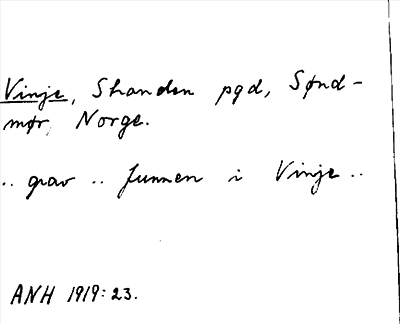 Vinje, Skanden pgd, Sønd-
mør, Norge.
.. grav .. funnen i Vinje ..
ANH 1919:23.